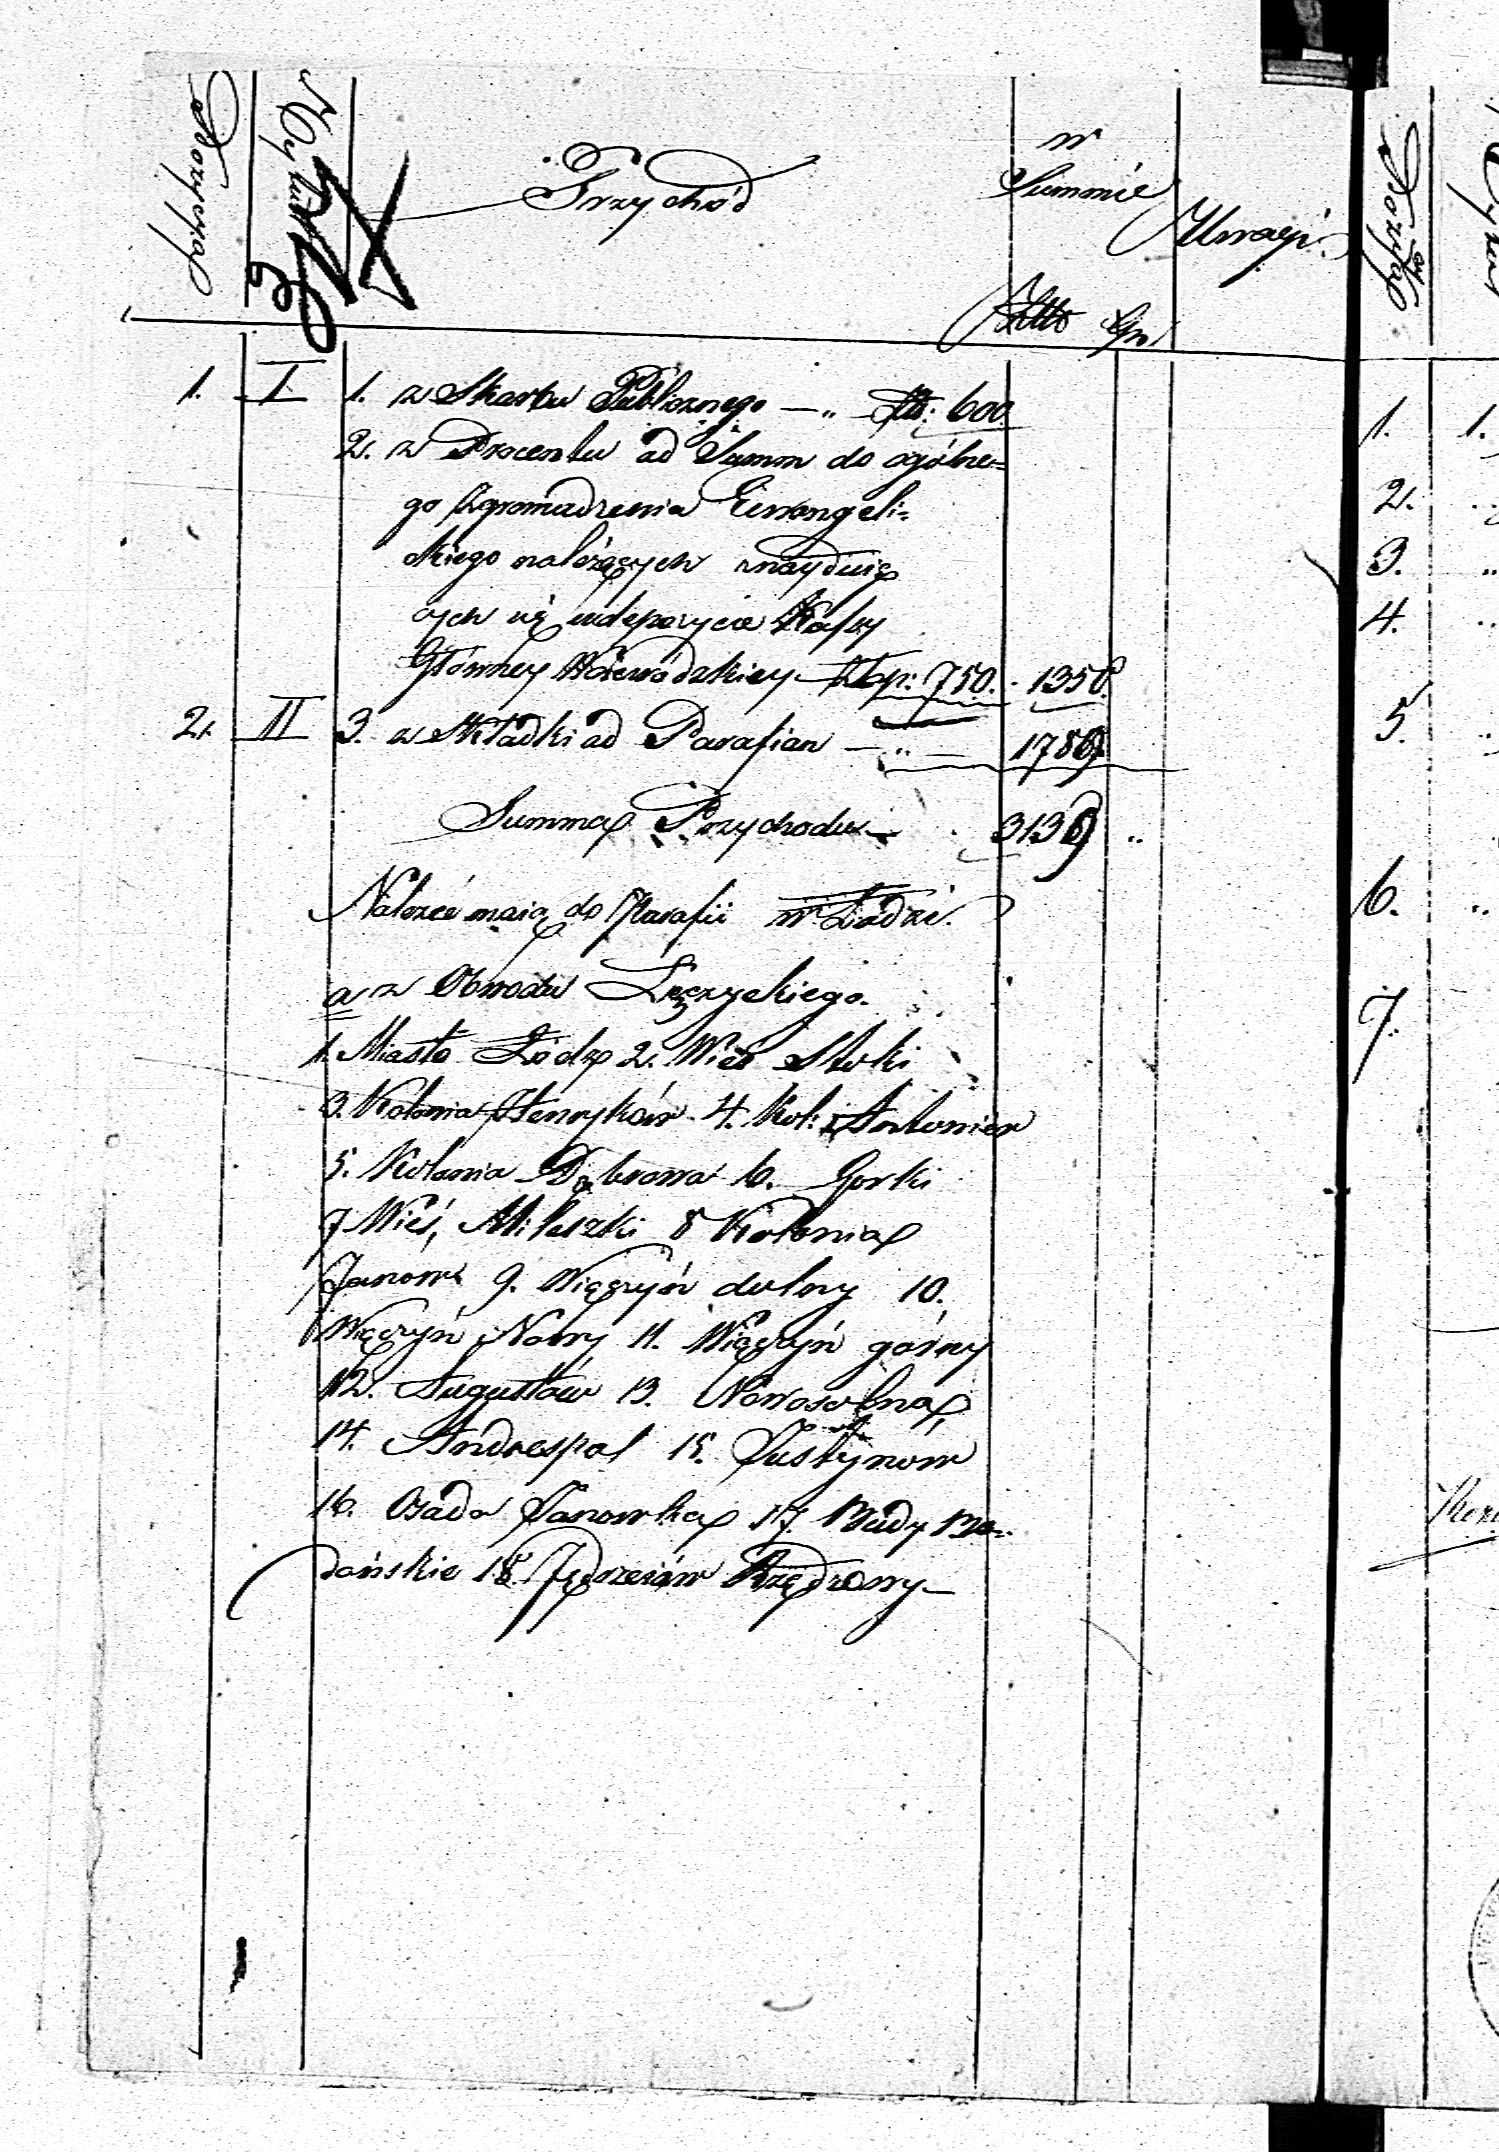 Pozycya
Tytuł
Przychód
w
Summie
Uwagi
Złto Gr.
1. I. 1. z Skarbu Publicznego — „ — Złt: 600.
2. z Procentu od Summ do ogólne=
go Zgromadzenia Ewangeli-
ckiego należących znayduią
cych się w depozycie Kassy
Główney Woiewódzkiey Złp: 750. - 1350.
2. II 3. z Składki od Parafian — „ — 1789
Summa Przychodu — 3139 „
Należeć maią do Parafii w Łodzi.
a z Obwodu Łęczyckiego.
1. Miasto Łódz 2. Wieś Stoki
3. Kolonia Henryków 4. Kol: Antoniew
5. Kolonia Dąbrowa 6. Gorki
7 Wieś, Mileszki 8 Kolonia
Janow 9. Wiączyń dolny 10.
Wiączyń Nowy 11. Wiączyń górny
12. Augustów 13. Nowosolna,
14. Andrespol 15. Justynow
16. Osada Janowka 17. Budy
18. Jędrzeiow Rzędowy —
Pozycya
1. 1.
2.
3. „
4. „
5. „
6. „
7.